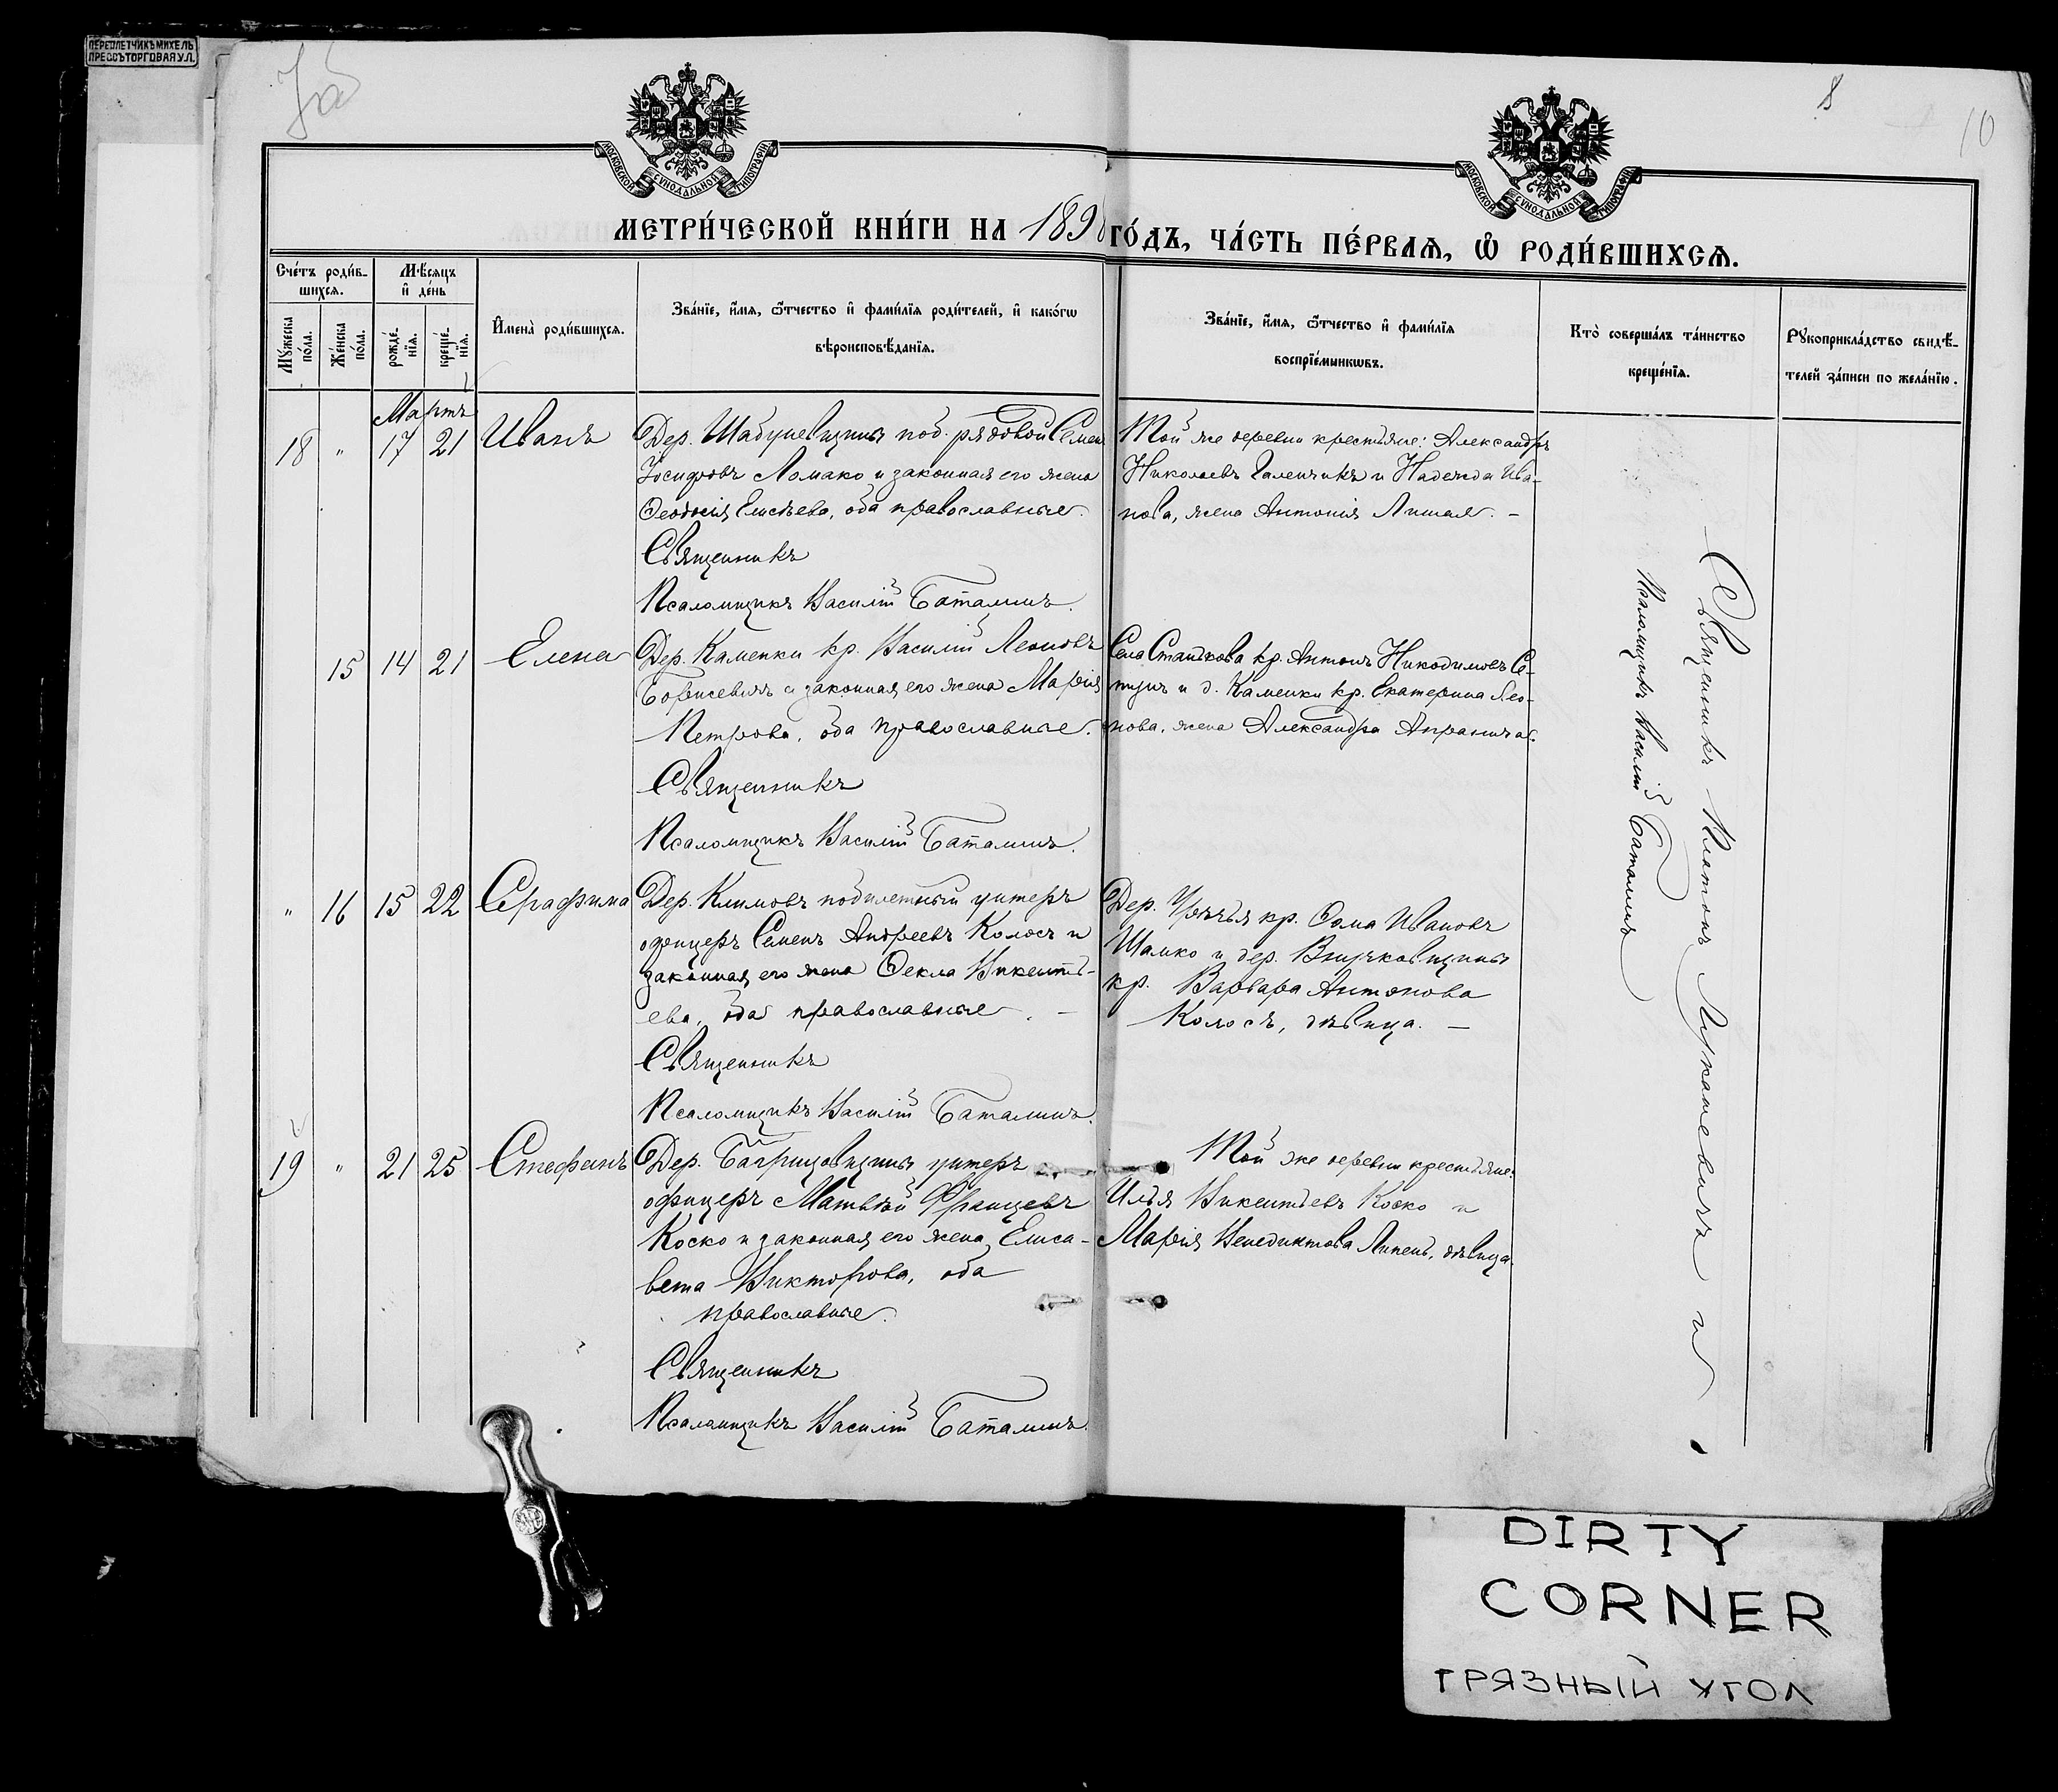 ПЕРЕПЛЕТЧИКЪ МИХЕЛЬ
ПРЕССЪ ТОРГОВАЯ УЛ.
8
10
МОСКОВСКОЙ СѴНОДАЛЬНОЙ ТИПОГРАФІИ
МОСКОВСКОЙ СѴНОДАЛЬНОЙ ТИПОГРАФІИ
МЕТРИ́ЧЕСКОЙ КНИ́ГИ НА 189 ГО́ДЪ, ЧА́СТЬ ПЕ́РВАѦ, Ѽ РОДИ́ВШИХСѦ.
Сче́тъ роди́в-
шихсѧ.
Мѣ́сяцъ
и҆ де́нь
Мꙋ́жеска по́ла.
Же́нска по́ла.
рожде́-
нїѧ.
креще́-
нїѧ.
И҆мена̀ роди́вшихсѧ.
Зва́нїе, и҆́мѧ, ѻ҆́тчество и҆ фами́лїѧ роди́телей, и҆ како́гѡ
вѣроисповѣ́данїѧ.
Зва́нїе, и҆́мѧ, ѻ҆́тчество и҆ фами́лїѧ
воспрїе́мникѡвъ.
Кто̀ соверша́лъ та́инство
креще́нїѧ.
Рꙋкоприкла́дство свидѣ́-
телей за́писи по жела́нїю.
Мартъ
18 " 17 21 Иванъ
Дер. Шабуневщины поб. рядовой Семен
Іосифовъ Ломако и законная его жена
Ѳеодосія Елисѣева, оба православные.
Священникъ
Псаломщикъ Василій Баталинъ.
Той же деревни крестьяне: Александръ
Николаевъ Галенчикъ и Надежда Ива-
нова, жена Антонія Лишая. -
15 14 21 Елена
Дер. Каменки кр. Василій Леоновъ
Борисевичъ и законная его жена Марія
Петрова, оба православные.
Священникъ
Псаломщикъ Василій Баталинъ.
Села Станькова кр. Антонъ Никодимовъ
и д. Каменки кр. Екатерина Лео-
нова, жена Александра
" 16 15 22 Серафима
Дер. Климовъ побилетный унтеръ
офицеръ Семенъ Андреевъ Колосъ и
законная его жена Ѳекла Викентъ-
ева, оба православные. -
Священникъ
Псаломщикъ Василій Баталинъ.
Дер. кр. Ѳома Ивановъ
Шамко и дер.
кр. Варвара Антонова
Колосъ, дѣвица. -
19 " 21 25 Стефанъ
Дер. унтеръ
офицеръ Матвѣй Францевъ
Коско и законная его жена Елиса-
вета Викторова, оба
православные.
Священникъ
Псаломщикъ Василій Баталинъ.
Той же деревни крестьяне:
Илья Викентьевъ Коско и
Марія Венедиктова Липень, дѣвица.
Священникъ Платонъ и
Псаломщикъ Василій Баталинъ
DIRTY
CORNER
ГРЯЗНЫЙ УГОЛ